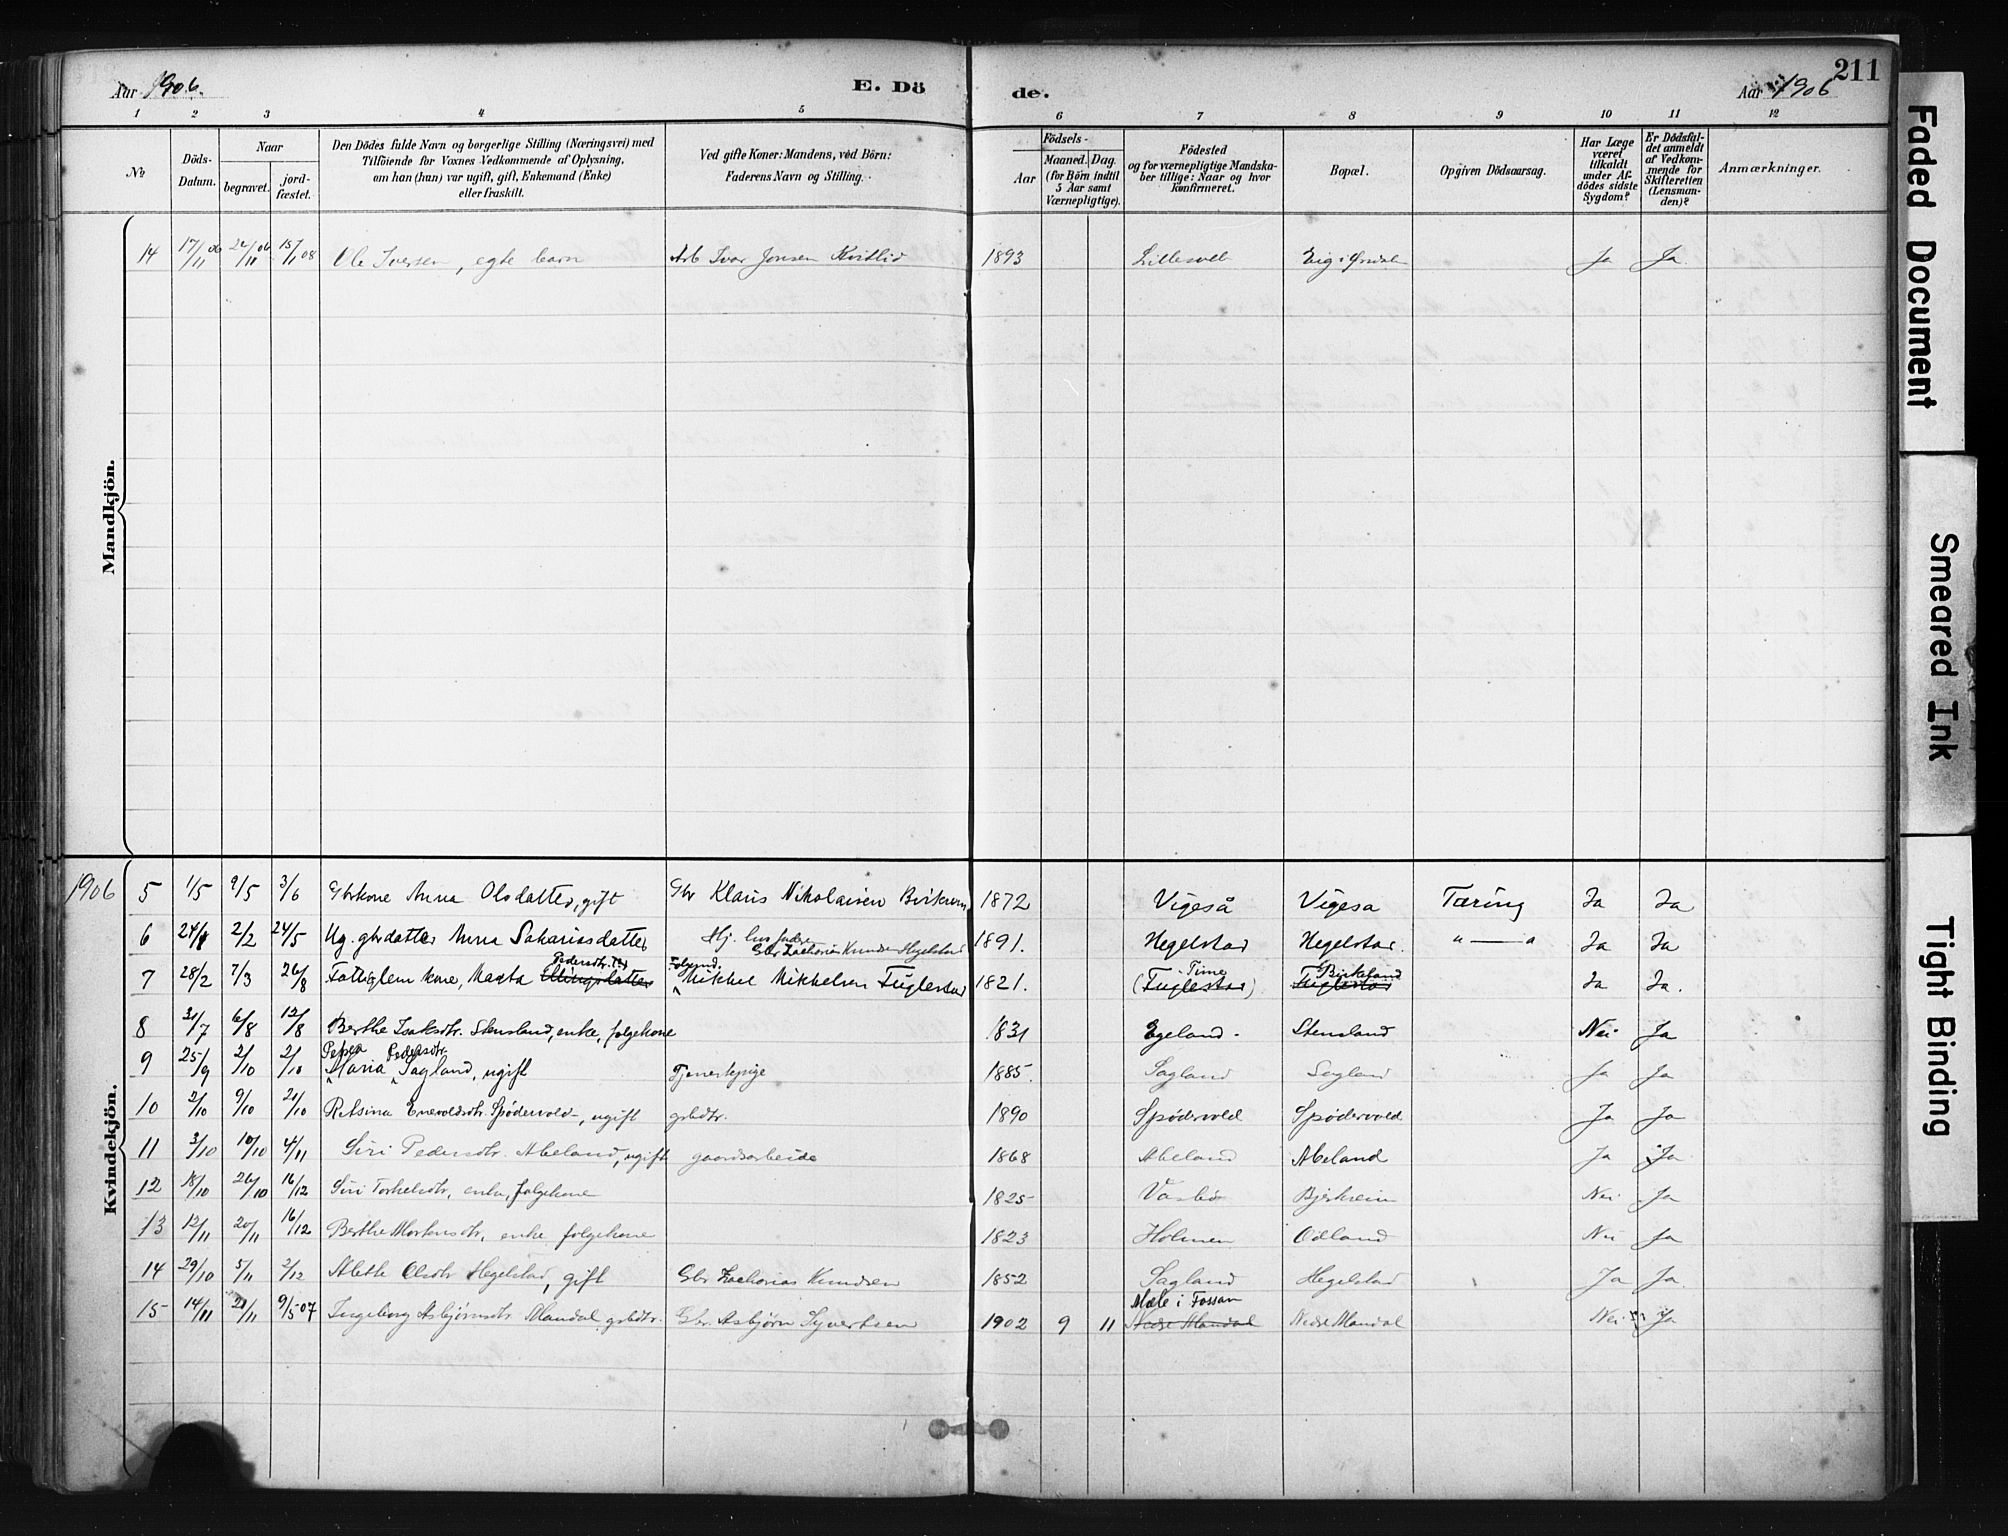 Aar 1906. E. Dö de. Aar 1906 211
1 2 3 4 5 6 7 8 9 10 11 12
№ Döds-Datum. Naar begravet. jord-fæstet. Den Dödes fulde Navn og borgerlige Stilling (Næringsvei) med Tilföiende for Voxnes Vedkommende af Oplysning, om han (hun) var ugift, gift, Enkemand (Enke) eller fraskilt. Ved gifte Koner: Mandens, ved Börn: Faderens Navn og Stilling. Födsels- Aar Maaned. Dag. (for Börn indtil 5 Aar samt Værnepligtige). Födested og for værnepligtige Mandskaber tillige: Naar og hvor Konfirmeret. Bopæl. Opgiven Dödsaarsag. Har Læge været tilkaldt under Afdödes sidste Sygdom? Er Dödsfaldet anmeldt af Vedkommende for Skifteretten (Lensmanden)? Anmærkninger.
Mandkjön.
14 17/11 06 24/11 06 15/1 08 Ole Iversen, egte barn Arb Ivar Jonsen Kvitlid 1893 Eig i Ørsdal Ja Ja.
Kvindekjön.
1906 5 1/5 9/5 3/6 Gbrkone Anna Olsdatter, gift Gbr Klaus Nikolaisen Birkrem 1872 Vigeså Vigesa Tæring Ja Ja
6 2/2 24/5 Ug. gbrdatter Anna Sakariasdatter Hj. hus fader Gbr Zacharias Knudsen Hegelstad 1891. Hegelstad Hegelstad. " — " Ja Ja
7 28/2 7/3 26/8 Fattiglem kone, Marta Ellingsdatter Pedersdtr. Mikkel Mikkelsen Fuglestad 1821. (Fuglestad) Time Fuglestad Birkeland Ja Ja.
8 31/7 6/8 12/8 Berthe Isaksdtr. Stensland, enke, folgekone 1831 Egeland Stensland Nei Ja
9 25/9 2/10 2/10 Maria Pedersdtr. Sagland, ugift Tjenestepige 1885. Sagland Sagland Ja Ja
10 2/10 9/10 21/10 Retsina Enevoldsdtr. Spødervold, ugift gbdtr. 1890 Spødervold Spødervold Ja Ja
11 3/10 10/10 4/11 Siri Pedersdtr. Abeland, ugift gaardsarbeide 1868 Abeland Abeland Ja Ja
12 18/10 26/10 16/12 Siri Torkelsdtr, enke, folgekone 1825 Vasbø Bjerkreim Nei Ja
13 12/11 20/11 16/12 Berthe Mortensdtr, enke folgekone 1823 Holmen Odland Nei Ja
14 29/10 5/11 2/12 Alette Olsdtr Hegelstad, gift Gbr Zacharias Knudsen 1852 Sagland Hegelstad Ja Ja.
15 14/11 21/11 9/5-07 Ingeborg Asbjørnsdtr Mandal gbdtr. Gbr. Asbjørn Syvertsen 1902 9 11 Mæle i Fossan Nedre Mandal Nedre Mandal Nei Ja
Faded Document
Smeared Ink
Tight Binding